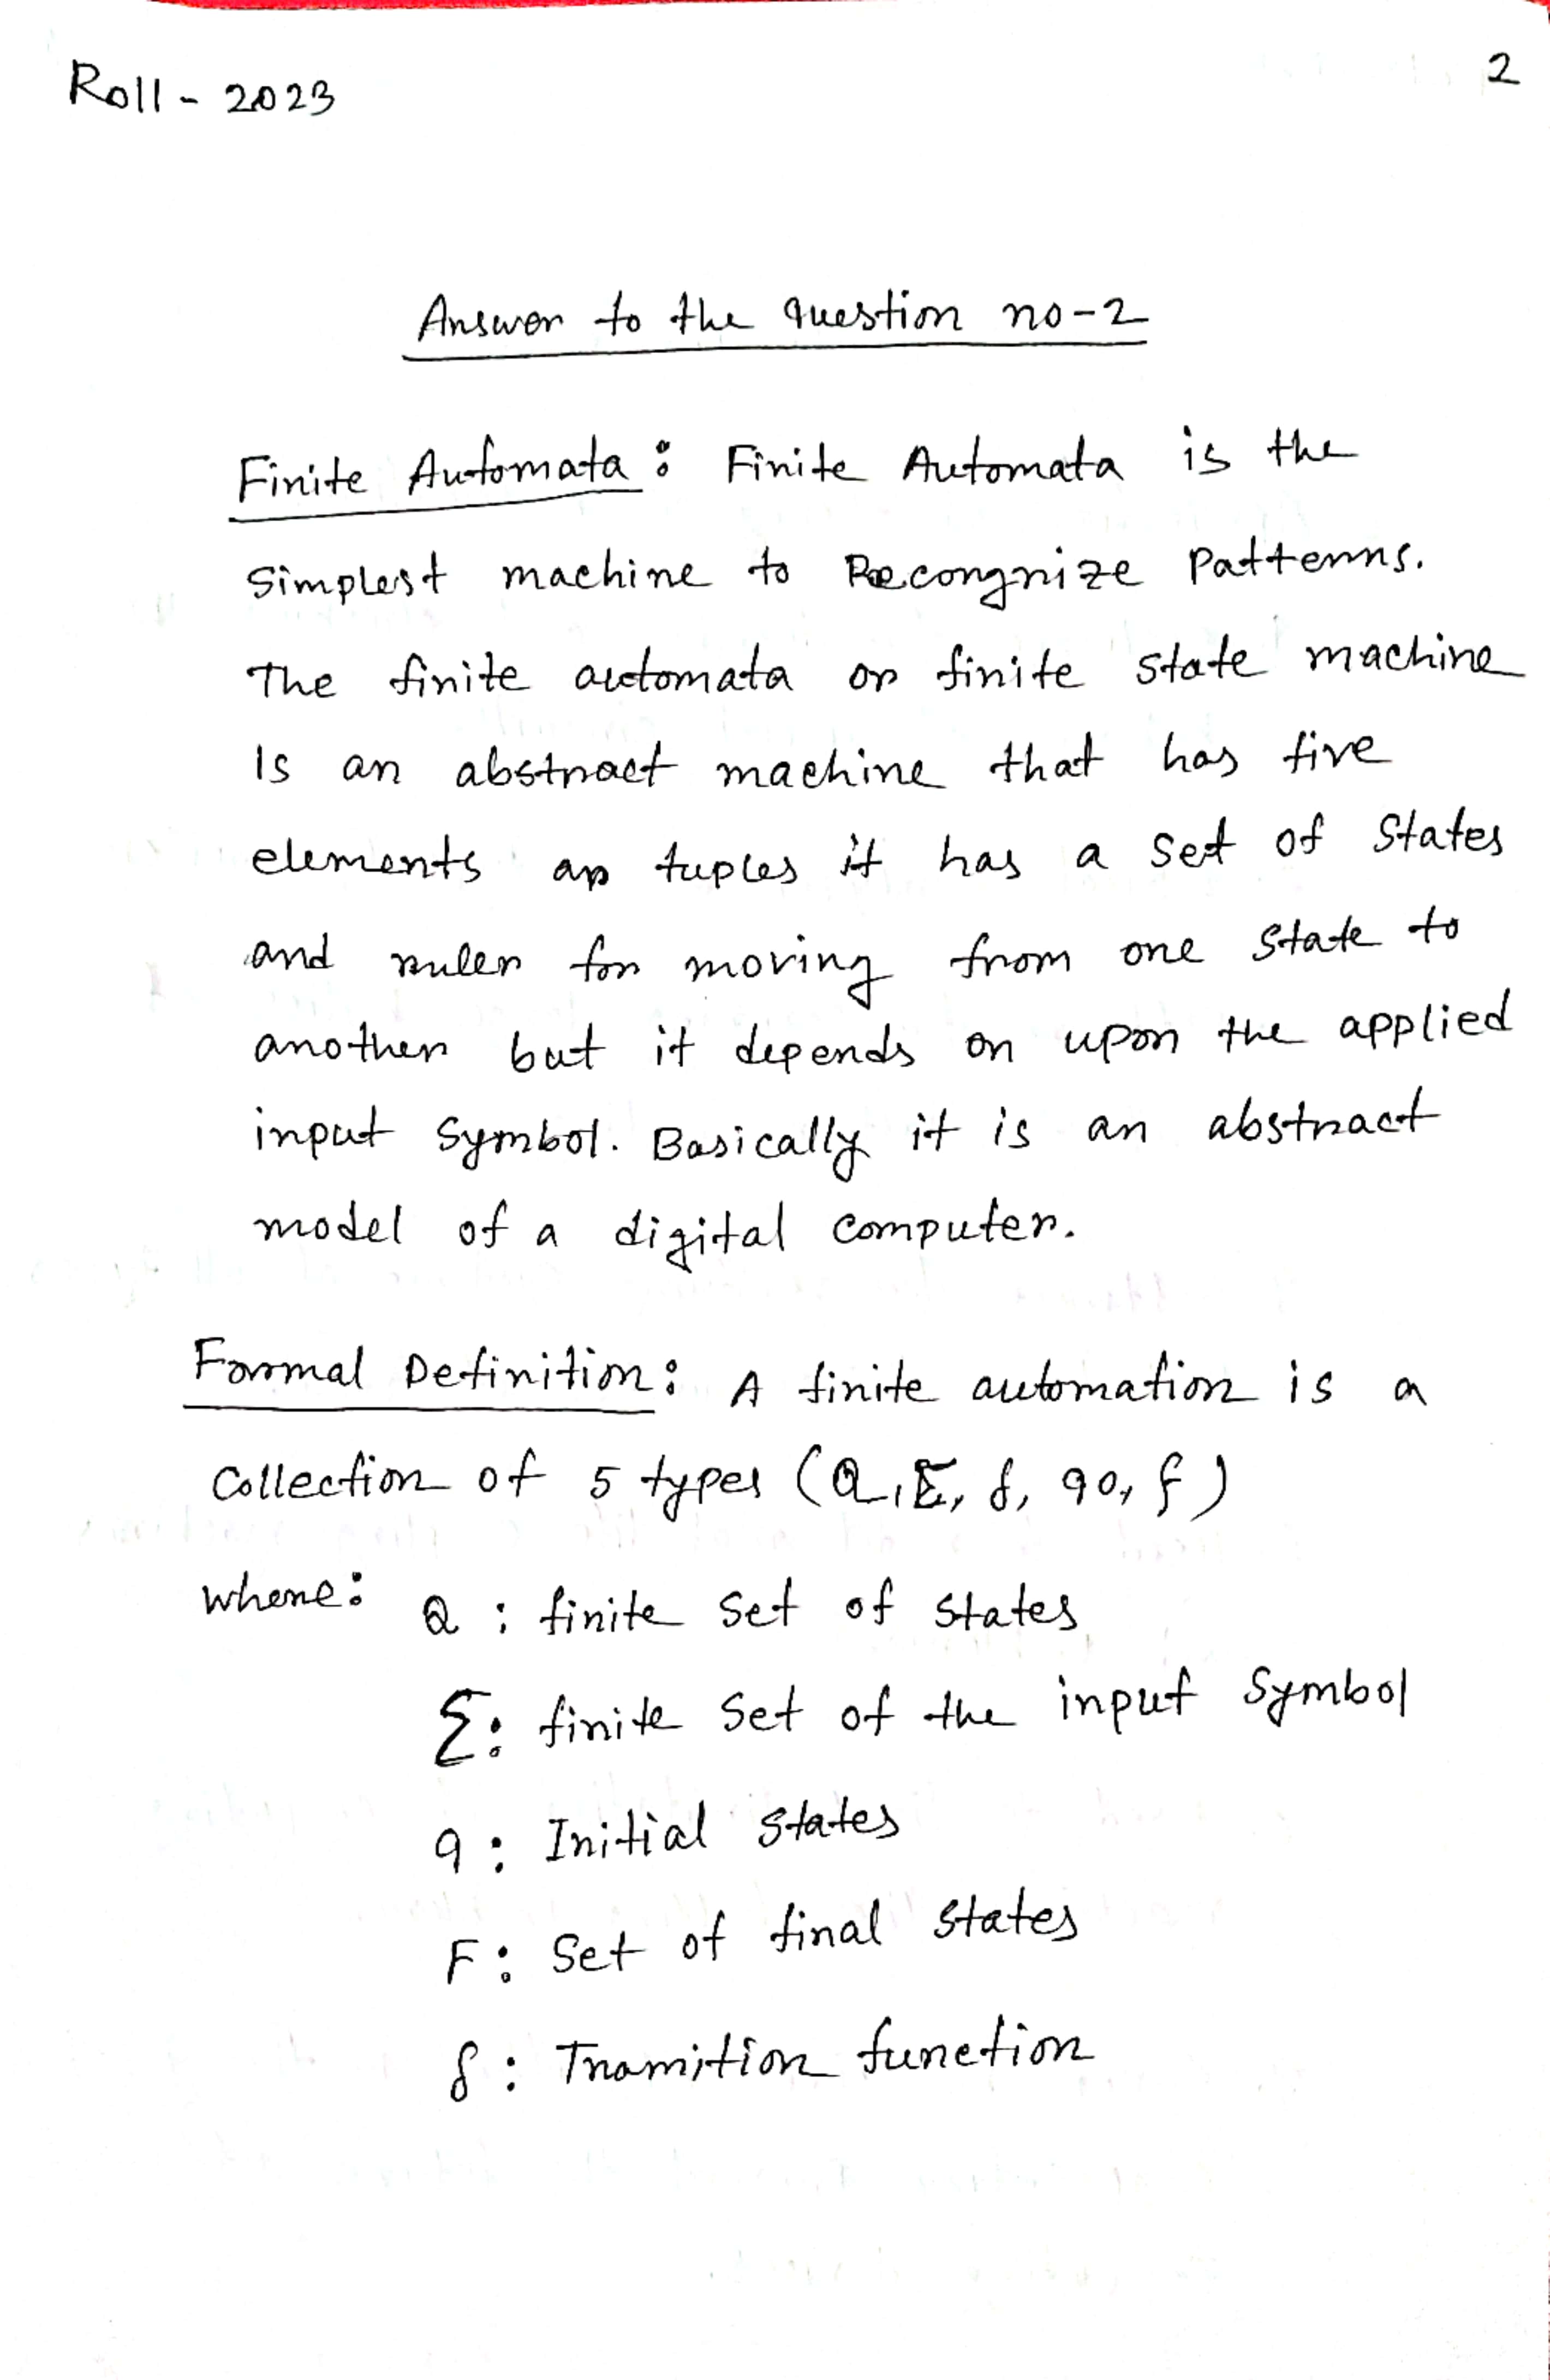 Roll - 2023
2
Answer to the question no-2
Finite Automata : Finite Automata is the
Simplest machine to Recongnize Patterns.
The finite automata or finite state machine
Is an abstract machine that has five
elements ar tuples it has a set of States
and ruler for moving from one State to
another but it depends on upon the applied
input Symbol. Basically it is an abstract
model of a digital computer.
Formal Definition : A finite automation is a
Collection of 5 types (Q, Σ, δ, q0, f)
where : Q : finite Set of States
Σ : finite Set of the input Symbol
q : Initial States
F : Set of final States
δ : Tramition function